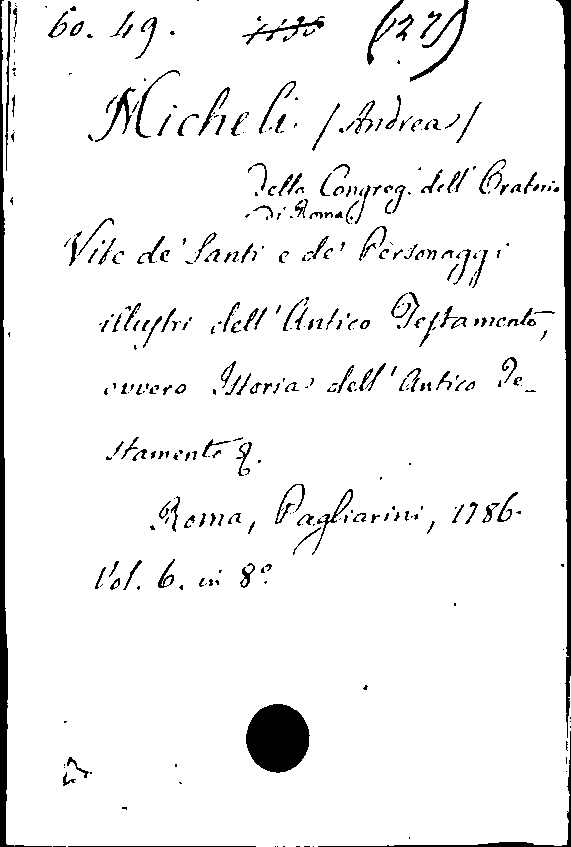 60. 49. 1136 (127)
Micheli /Andrea/
della Congreg. dell' Oratorio
di Roma
Vite de' Santi e de' Personaggi
illustri dell' Antico Testamento,
ovvero Istoria dell' Antico Te-
stamento &.
Roma, Pagliarini, 1786.
Vol. 6. in 8°.